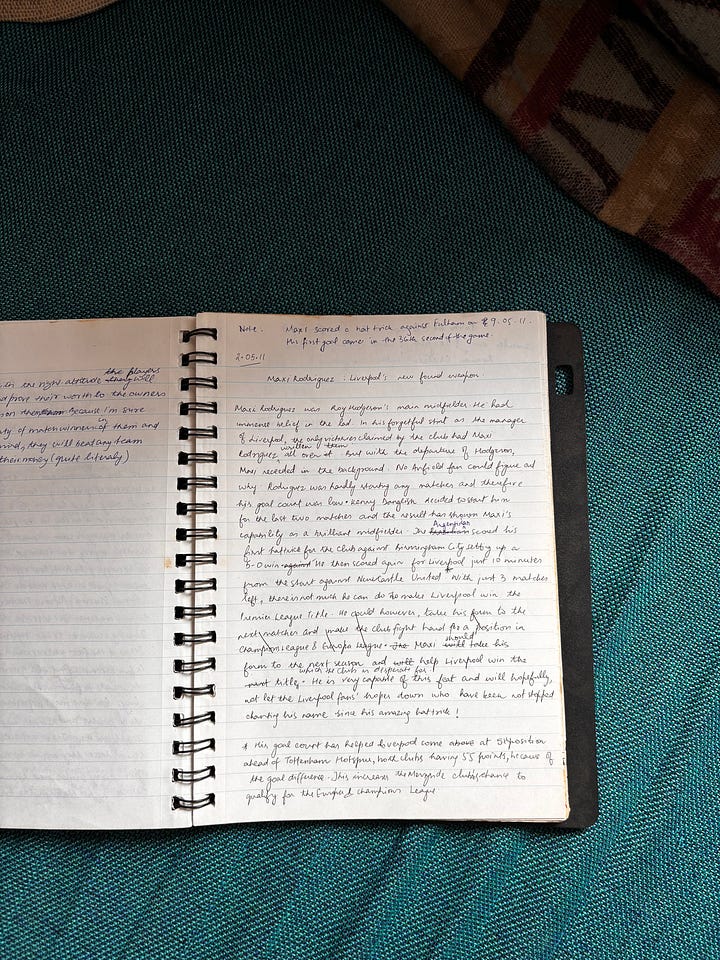 the players
with the right attitude they will
prove their worth to the owners
because I'm sure
in
of matchwinners of them and
mind, they will beat any team
their money (quite literaly)
Note: Maxi scored a hat trick against Fulham on 9.05.11.
His first goal came in the 36th second of the game.
2.05.11
Maxi Rodriguez : Liverpool's new found weapon.
Maxi Rodriguez was Roy Hodgson's main midfielder. He had
immense belief in the lad. In his forgetful stint as the manager
of Liverpool, the only victories claimed by the club had Maxi
written them
Rodriguez all over it. But with the departure of Hodgson,
Maxi receded in the background. No Anfield fan could figure out
why Rodriguez was hardly starting any matches and therefore
his goal count was low. Kenny Danglish decided to start him
for the last two matches and the result has shown Maxi's
capability as a brilliant midfielder. The
Argentinian
scored his
first hattrick for the club against Birmingham City setting up a
5-0 win against. He then scored again for Liverpool just 10 minutes
from the start against Newcastle United. With just 3 matches
left, there is not much he can do to make Liverpool win the
Premier League Title. He could however, take his form to the
next matches and make the club fight hard for a position in
Champions League & Europa League. The Maxi will
should
take his
form to the next season and will help Liverpool win the
which the club is in desperate for!
next title. He is very capable of this feat and will hopefully,
not let the Liverpool fans' hopes down who have been not stopped
chanting his name since his amazing hat trick!
* His goal count has helped Liverpool come above at 5th position
ahead of Tottenham Hotspur, both clubs having 55 points, because of
the goal difference. This increases the Merseyside club's chance to
qualify for the Europa & Champions League